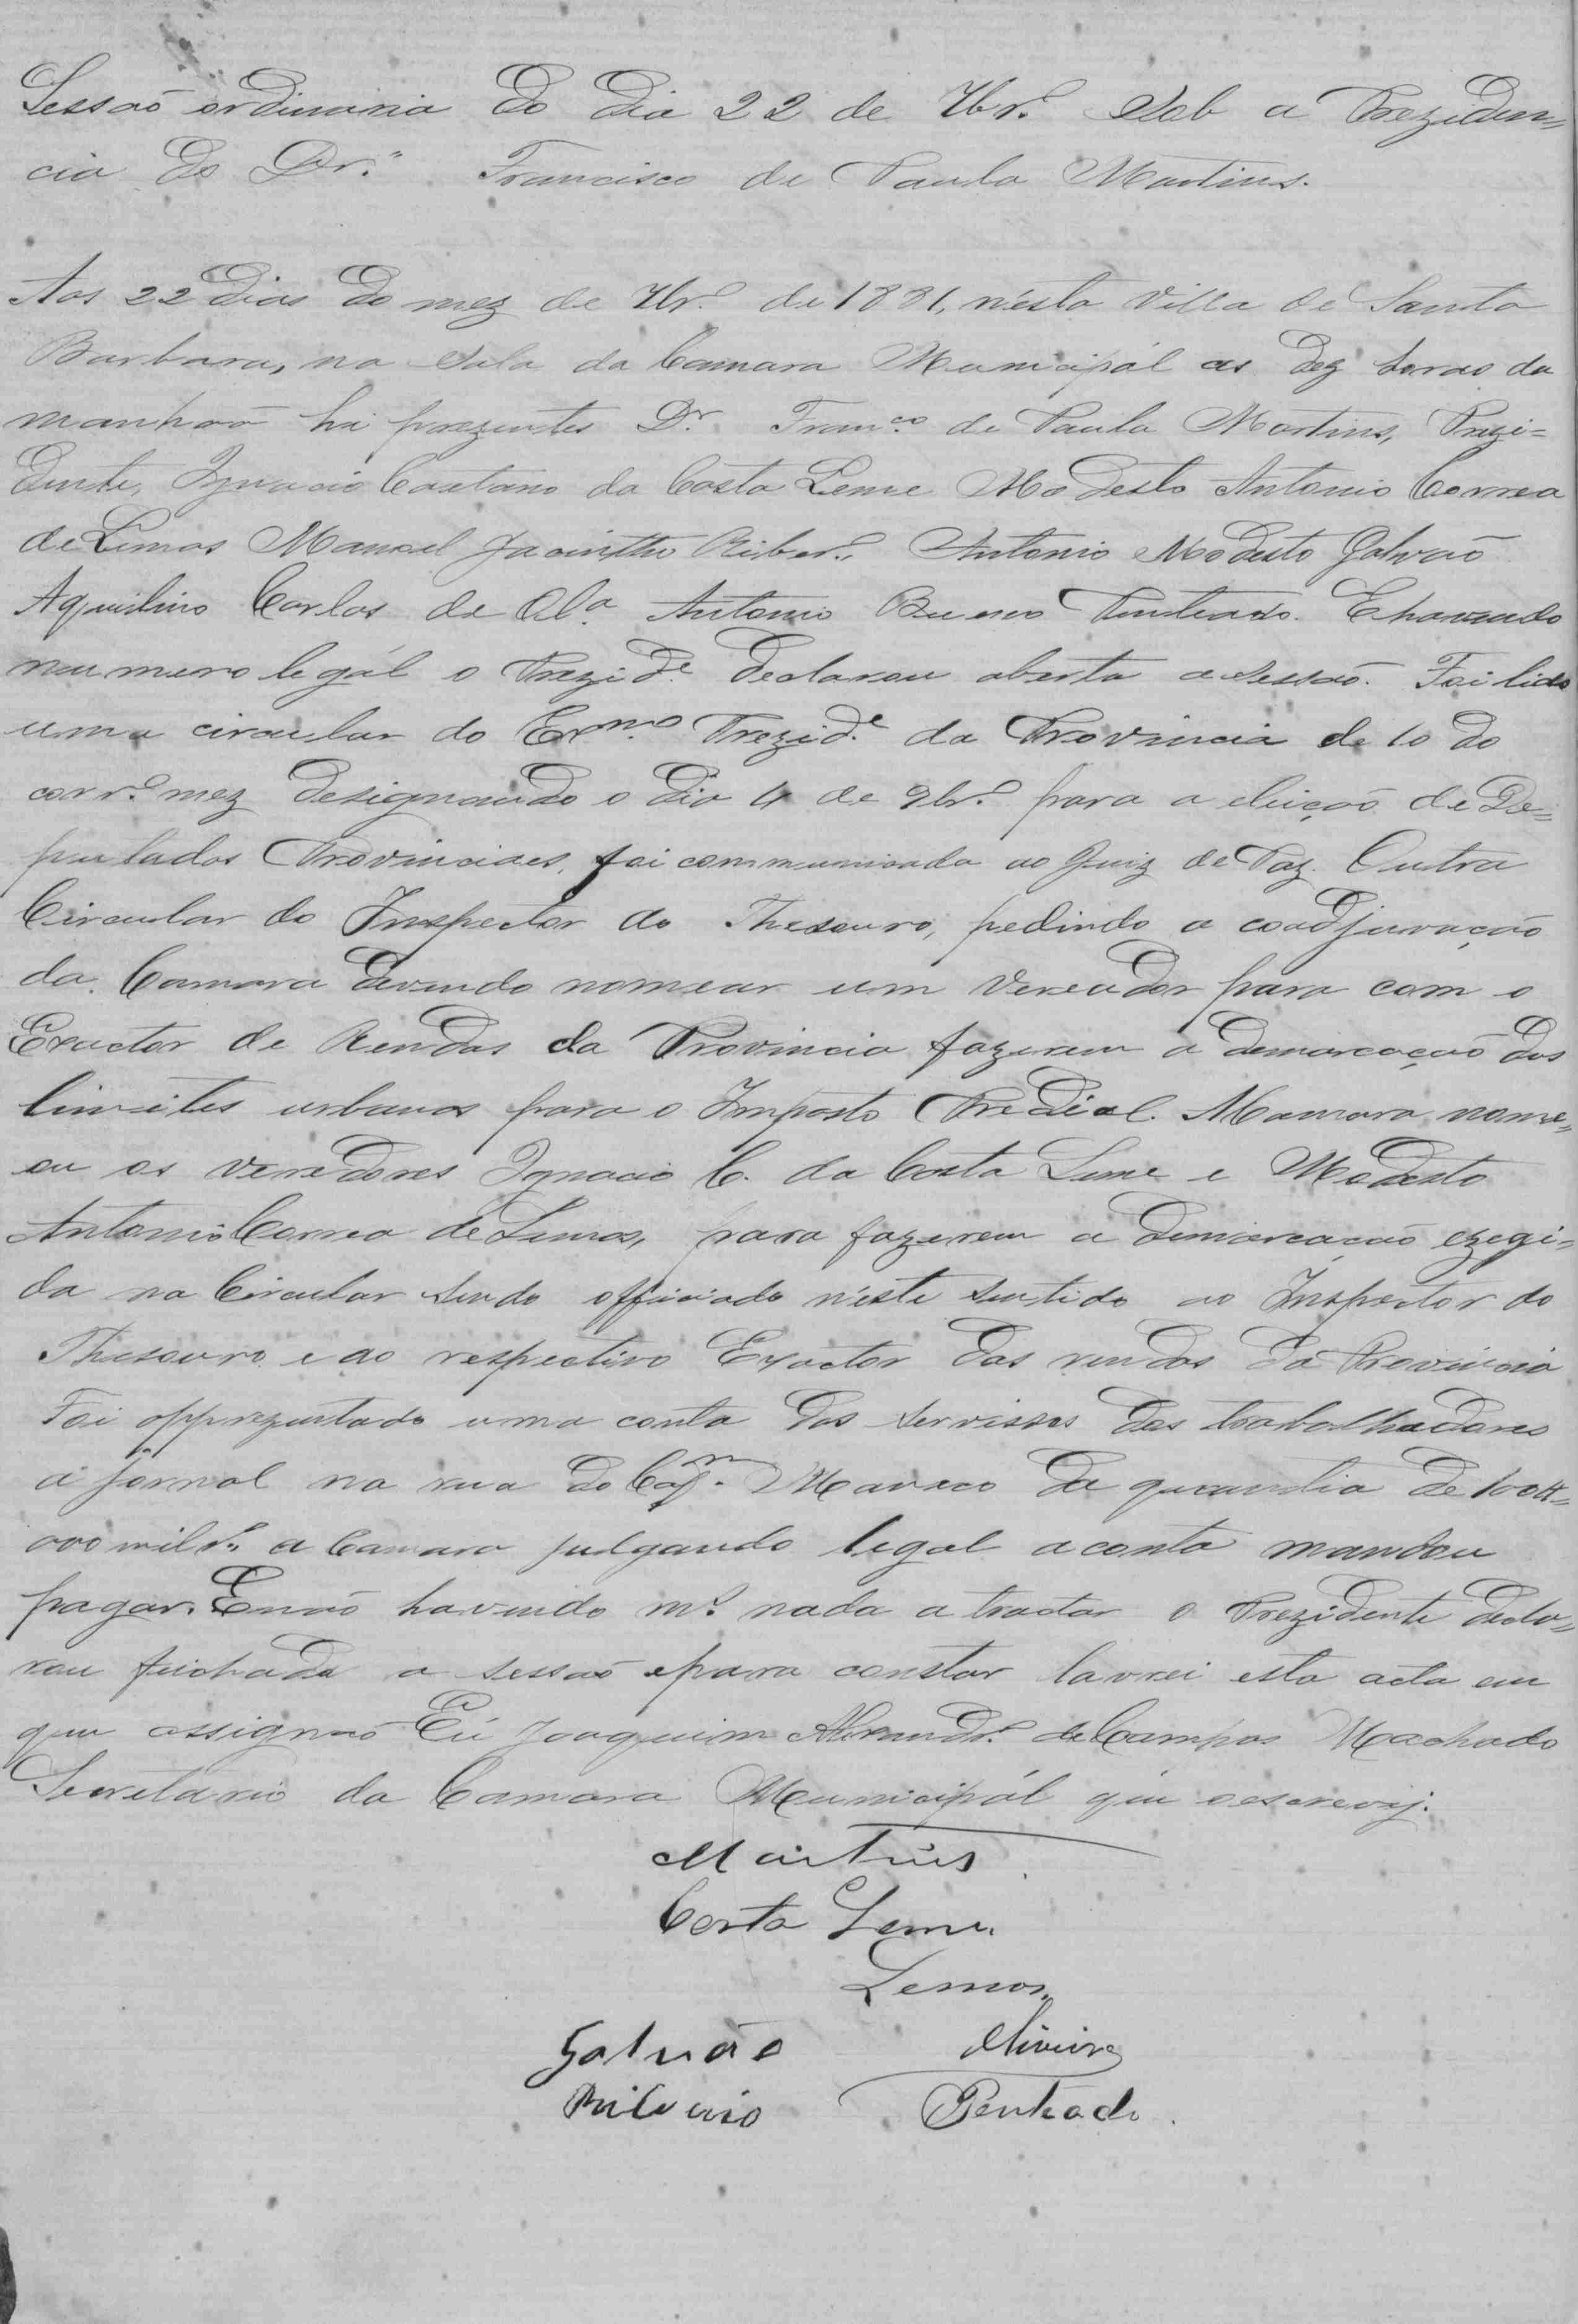 Sessão ordinaria do dia 22 de 7br.º Sob a Preziden=
cia do Dr.º Francisco de Paula Martins.
Aos 22 dias do mez de 7br.º de 1881, n'esta Villa de Santa
Barbara, na Sala da Camara Municipál as dez horas da
manhaõ hi prezentes Dr. Franco. de Paula Martins, Prezi=
dente, Ignacio Caetano da Costa Leme Modesto Antonio Correa
de Lemos Manoel Jacintho Riber.º Antonio Modesto Galvaõ
Aquilino Carlos de Olª. Antonio Bueno Penteado. E havendo
numero legál o Prezide. declarou aberta a sessaõ. Foi lido
uma circular do Exmº. Prezide. da Provincia de 10 do
corr.e mez designando o dia 4 de 9br.º para a eleiçaõ de De=
putados Provinciaes, foi communicada ao Juiz de Paz. Outra
Circular do Inspector do Thesouro, pedindo a coadjuvaçaõ
da Camara devendo nomear um Vereador para com o
Exactor de Rendas da Provincia fazerem a demarcaçaõ dos
limites urbanos para o Imposto Predial. A Camara nome=
ou os veredores Ignacio C. da Costa Leme e Modesto
Antonio Correa de Lemos, para fazerem a demarcaçaõ ezegi=
da na Circular sendo officiado n'este sentido ao Inspector do
Thesouro e ao respectivo Exactor das rendas da Provincia
Foi apprezentado uma conta dos servissos dos trabalhadores
á jornal na rua do Capm. da quanndia de 100$=
000 mil r.s a Camara julgando legal a conta mandou
pagar. E naõ havendo m.s nada a tractar o Prezidente decla=
rou feichada a sessaõ e para constar lavrei esta acta em
que assignaõ Eú Joaquim de Campos Machado
Secretario da Camara Municipál que o escrevij.
Martins
Costa Leme
Lemos
Galvão Oliveira
Ribeiro Penteado.